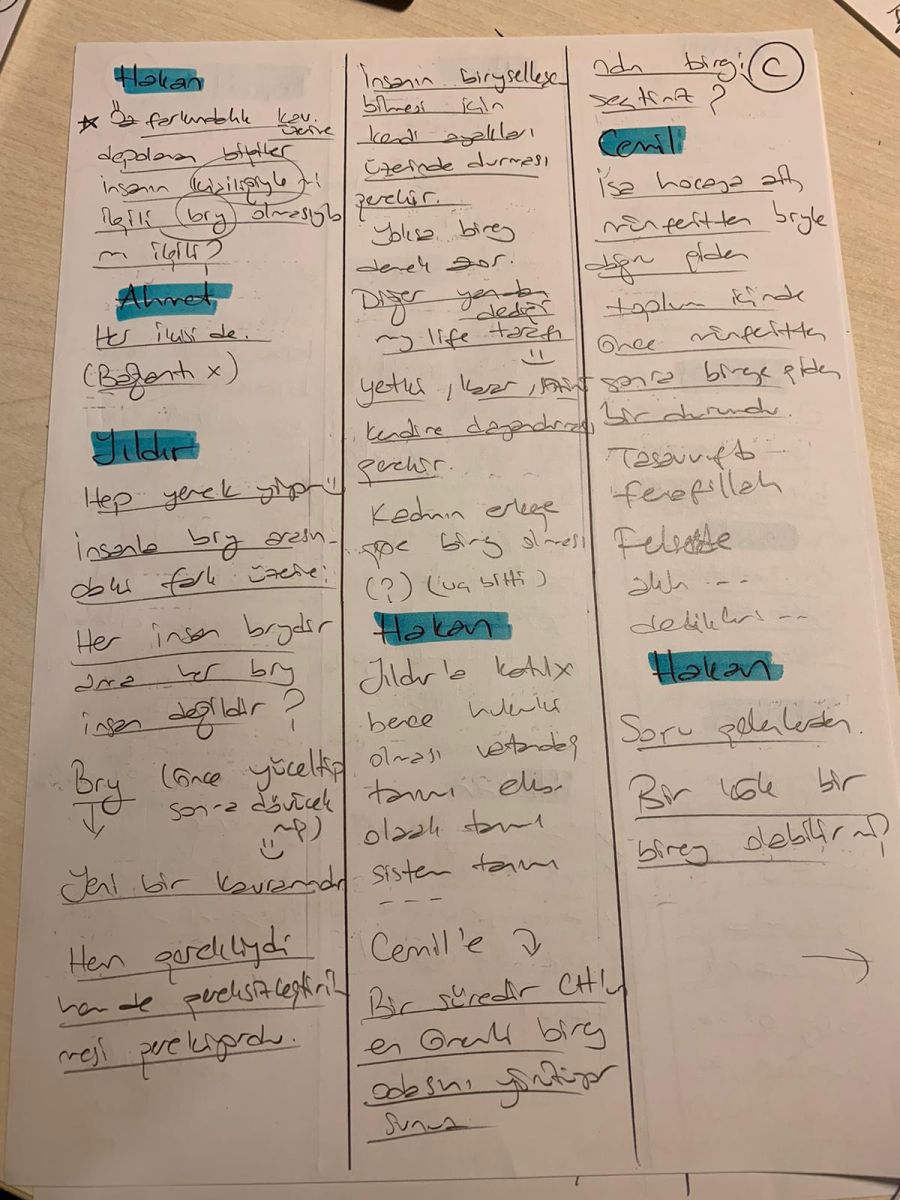 Hakan
Öz farkındalık kav.
üzerine
depolanan bilgiler
insanın kişiliğiyle mi
ilgili bry olmasıyla
mı ilgili?
Ahmet
Her ikisi de.
(Bağlantı x)
Yıldır
Hep yemek yiyor
insanla bry arasın-
daki fark üzerine:
Her insan brydir
ama her bry
insan değildir?
Bry (önce yüceltip
sonra dövücek
mi?)
Yeni bir kavramdır
Hem gerekliydi
hem de gereksizleştiril
mesi gerekiyordu.
İnsanın biryselleşe
bilmesi için
kendi ayakları
üzerinde durması
gerekir.
Yoksa birey
demek zor.
Diğer yandan
dediği
my life tarafı
yetki, karar,
kendine dayandırması
gerekir.
Kadının erkeğe
göre birey olması
(?) (va bitti)
Hakan
Yıldır'a katılx
bence hukuki
olması vatandaş
tanımı
olarak tanım
sistem tanımı
---
Cemil'e
Bir süredir CHln
en önemli birey
odasını yürütüyor
sunuz
C
birgi
seçtiniz?
Cemil
isa hocaya atfı
münferitten bryle
doğru giden
toplum içinde
Önce münferitten
sonra bireye giden
bir durumdu.
Tasavvufta
fenafillah
Felsefe
akla ---
dedikleri --
Hakan
Soru gelenlerden.
Bir kök bir
birey olabilir mi?